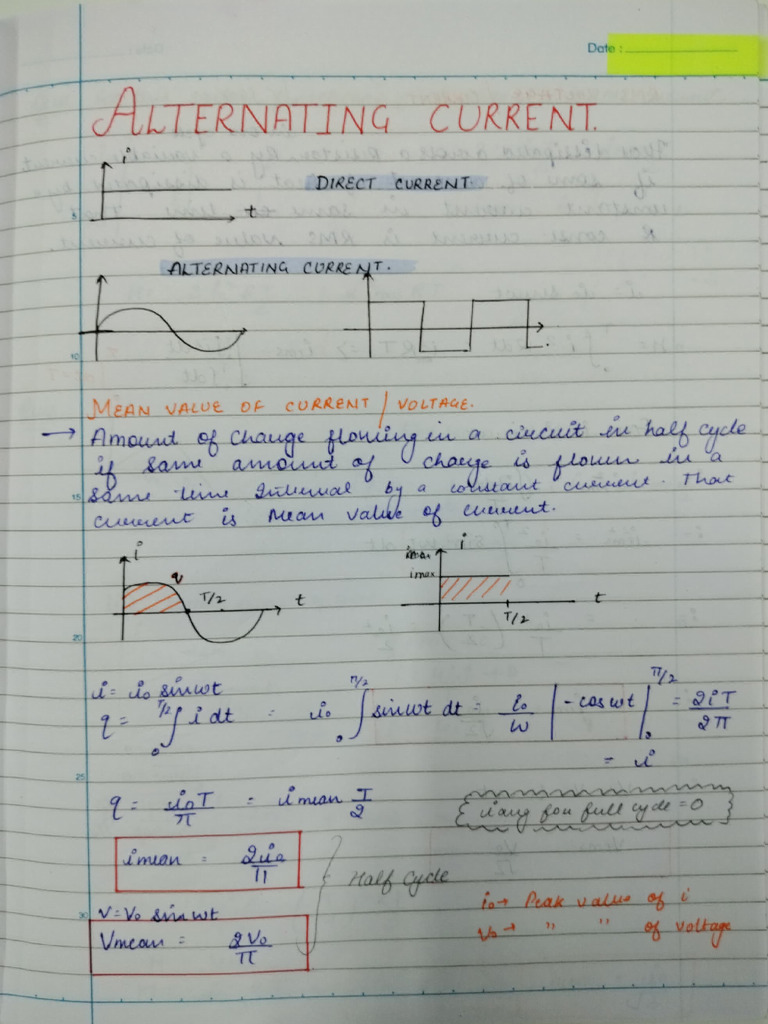 Date :
ALTERNATING CURRENT.
i
DIRECT CURRENT.
t
5
ALTERNATING CURRENT.
10
MEAN VALUE OF CURRENT / VOLTAGE.
→ Amount of change flowing in a circuit in half cycle
if same amount of charge is flown in a
15 same time Interval by a constant current. That
current is Mean value of current.
i q T/2 t
i imax T/2 t
20
i = i₀ sinωt
q = ₀∫^T/2 i dt = i₀ ₀∫^π/2 sinωt dt = i₀/ω |-cosωt|₀^π/2 = 2iT/2π
= i
25
q = i₀T/π = imean T/2
i avg for full cycle = 0
imean = 2i₀/π
Half Cycle
30 v = v₀ sinωt
Vmean = 2V₀/π
i₀→ Peak value of i
v₀→ " " of voltage